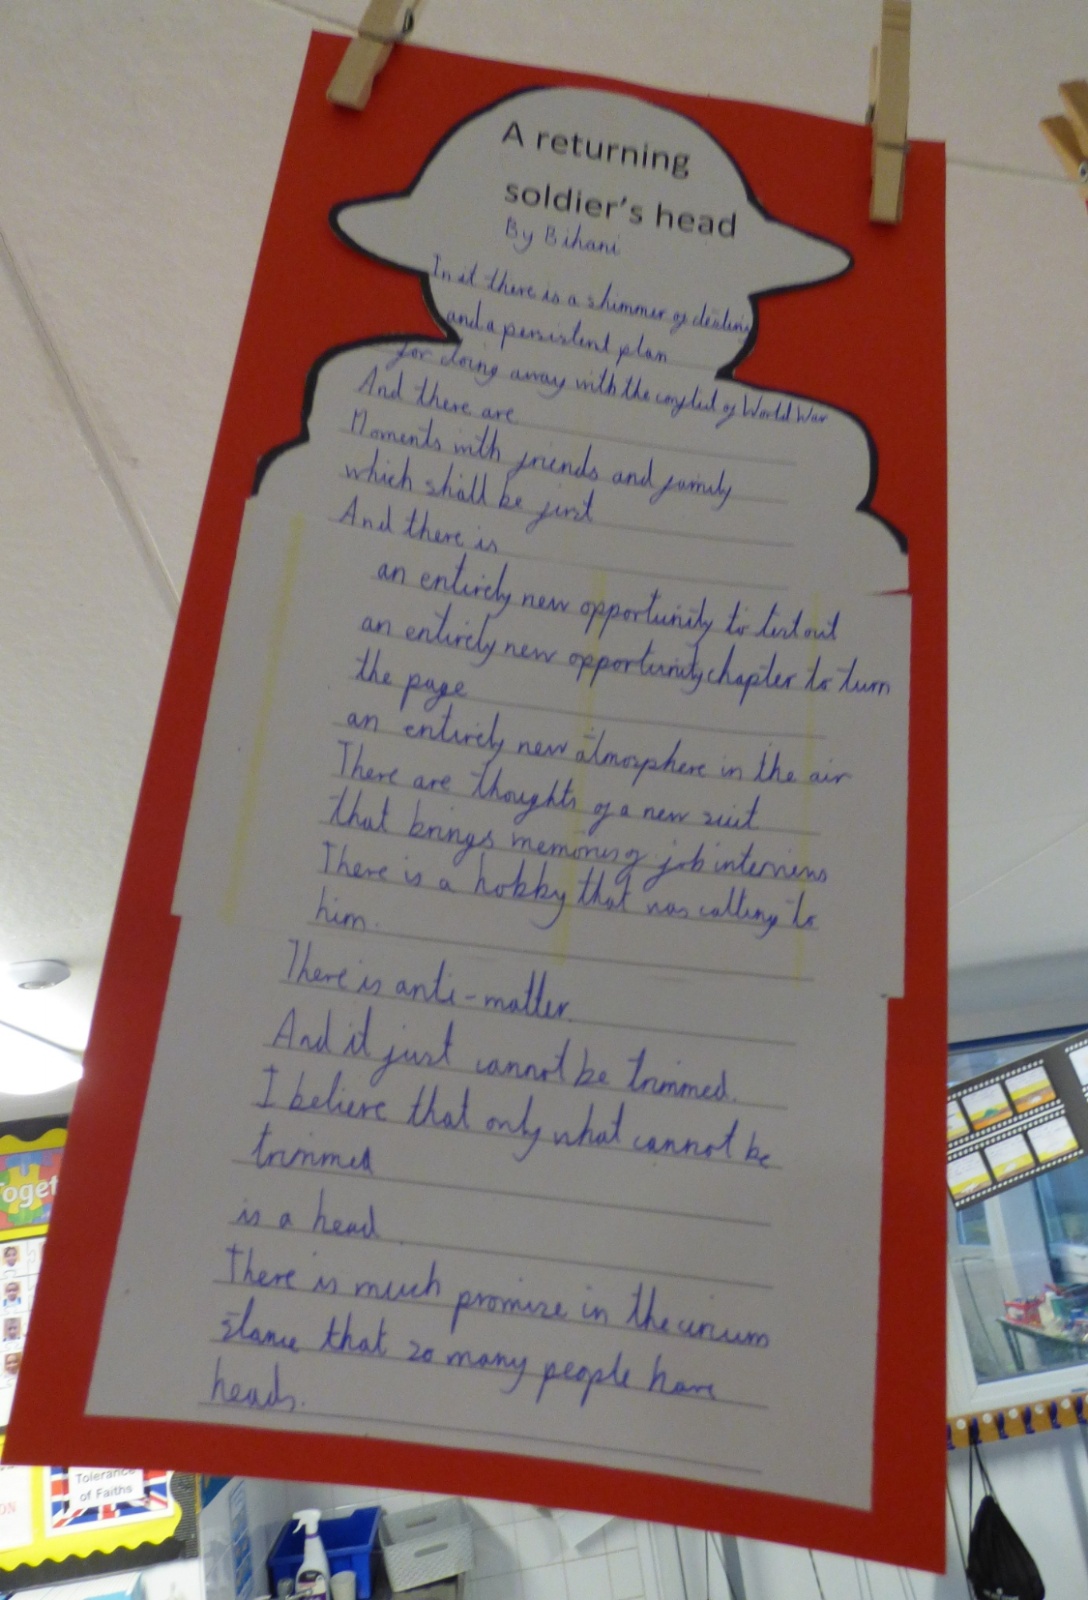 A returning
soldier's head
By Bihani
In it there is a shimmer of destiny
and a persistent plan
for doing away with the conflict of World War
And there are
Moments with friends and family
which shall be first
And there is
an entirely new opportunity to test out
an entirely new opportunity chapter to turn
the page
an entirely new atmosphere in the air
There are thoughts of a new suit
that brings memories of job interviews
There is a hobby that was calling to
him.
There is anti-matter.
And it just cannot be trimmed.
I believe that only what cannot be
trimmed
is a head.
There is much promise in the circum
stance that so many people have
heads.
Toget
Tolerance
of Faiths
ON